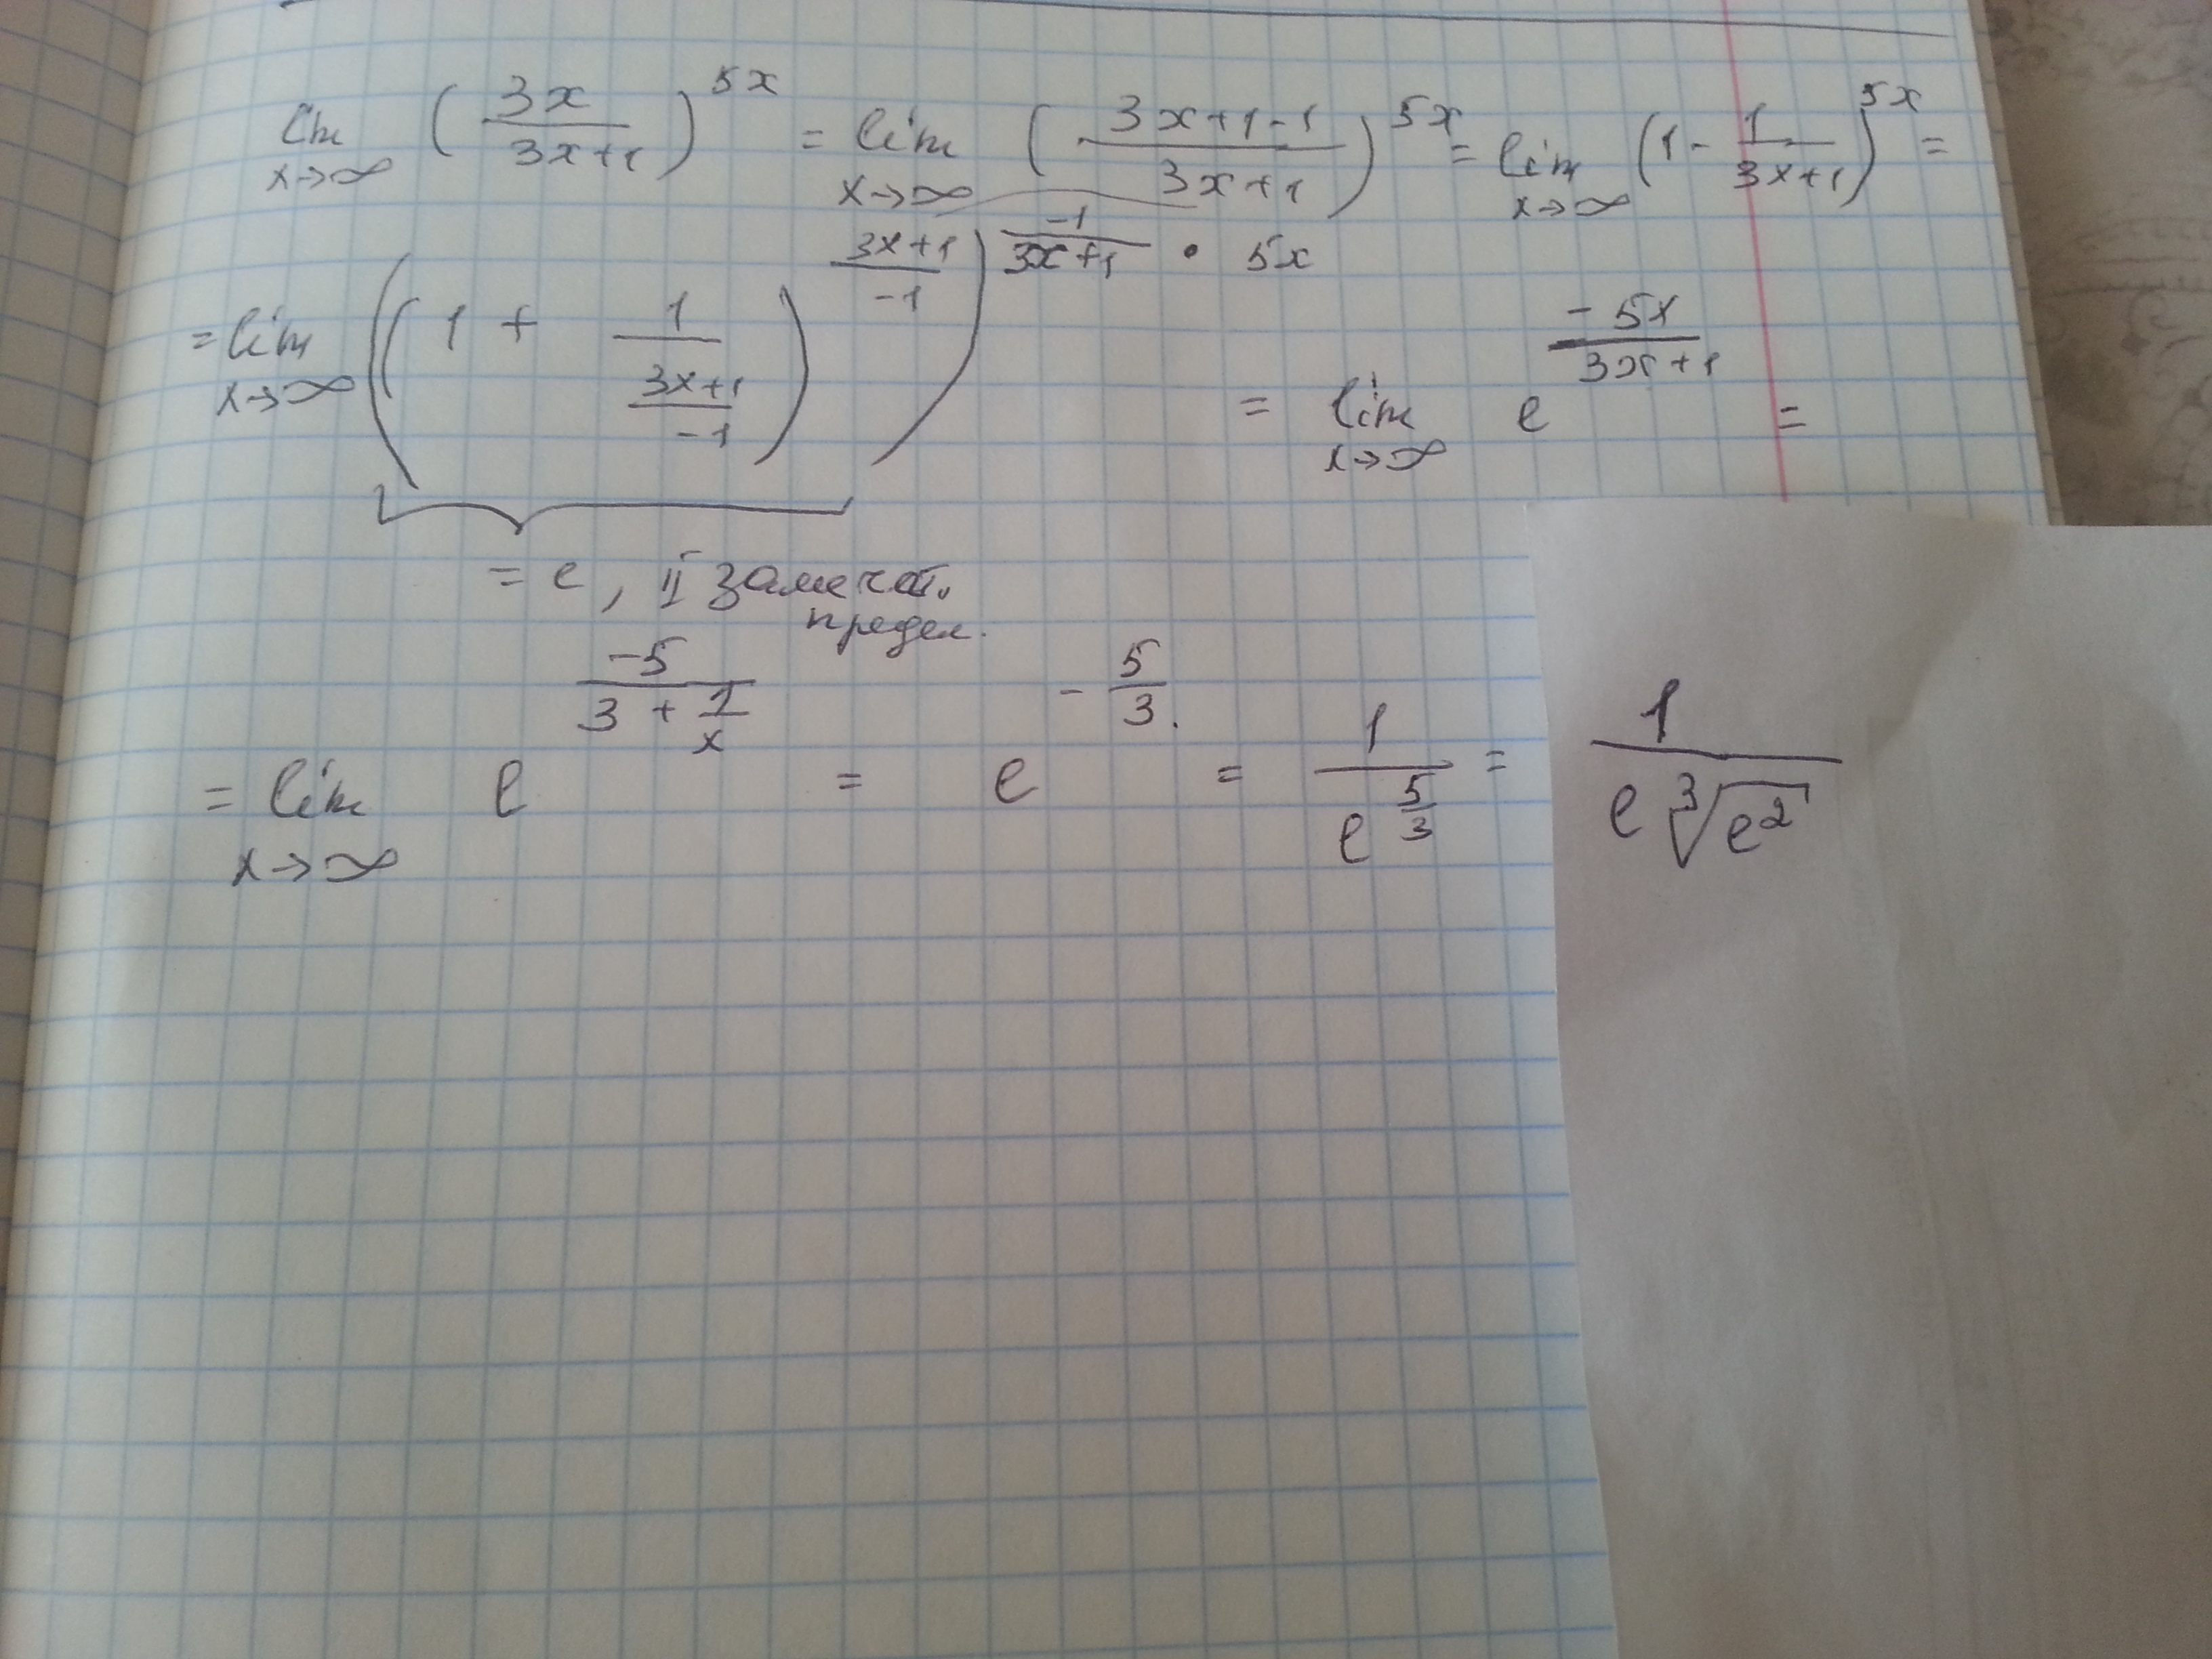 lim x→∞ (3x/(3x+1))^5x = lim x→∞ ((3x+1-1)/(3x+1))^5x = lim x→∞ (1 - 1/(3x+1))^5x =
= lim x→∞ ((1 + 1/((3x+1)/-1))^((3x+1)/-1))^(-1/(3x+1) · 5x) = lim x→∞ e^(-5x/(3x+1)) =
= e, II замечат.
предел.
= lim x→∞ e^(-5/(3 + 1/x)) = e^(-5/3) = 1/e^(5/3) = 1/(e ∛e²)